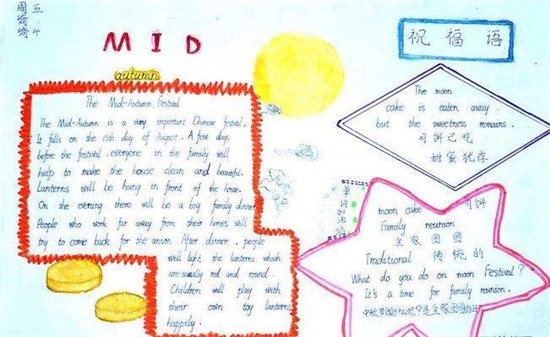 周五
MID
autumn
The Mid-Autumn Festival
The Mid-Autumn is a very important Chinese festival.
It falls on the 15th day of August. A few days
before the festival, everyone in the family will
help to make the house clean and beautiful.
Lanterns will be hung in front of the house.
On the evening there will be a big family dinner.
People who work far away from their homes will
try to come back for the union. After dinner, people
will light the lanterns which
are usually red and round.
Children will play with
their own toy lanterns
happily.
祝福语
The moon
cake is eaten away.
but the sweetness remains.
月饼已吃
甜蜜犹存
单词加油站
moon cake 月饼
Family reunion
全家团圆
Traditional 传统的
What do you do on moon Festival?
It's a time for family reunion.